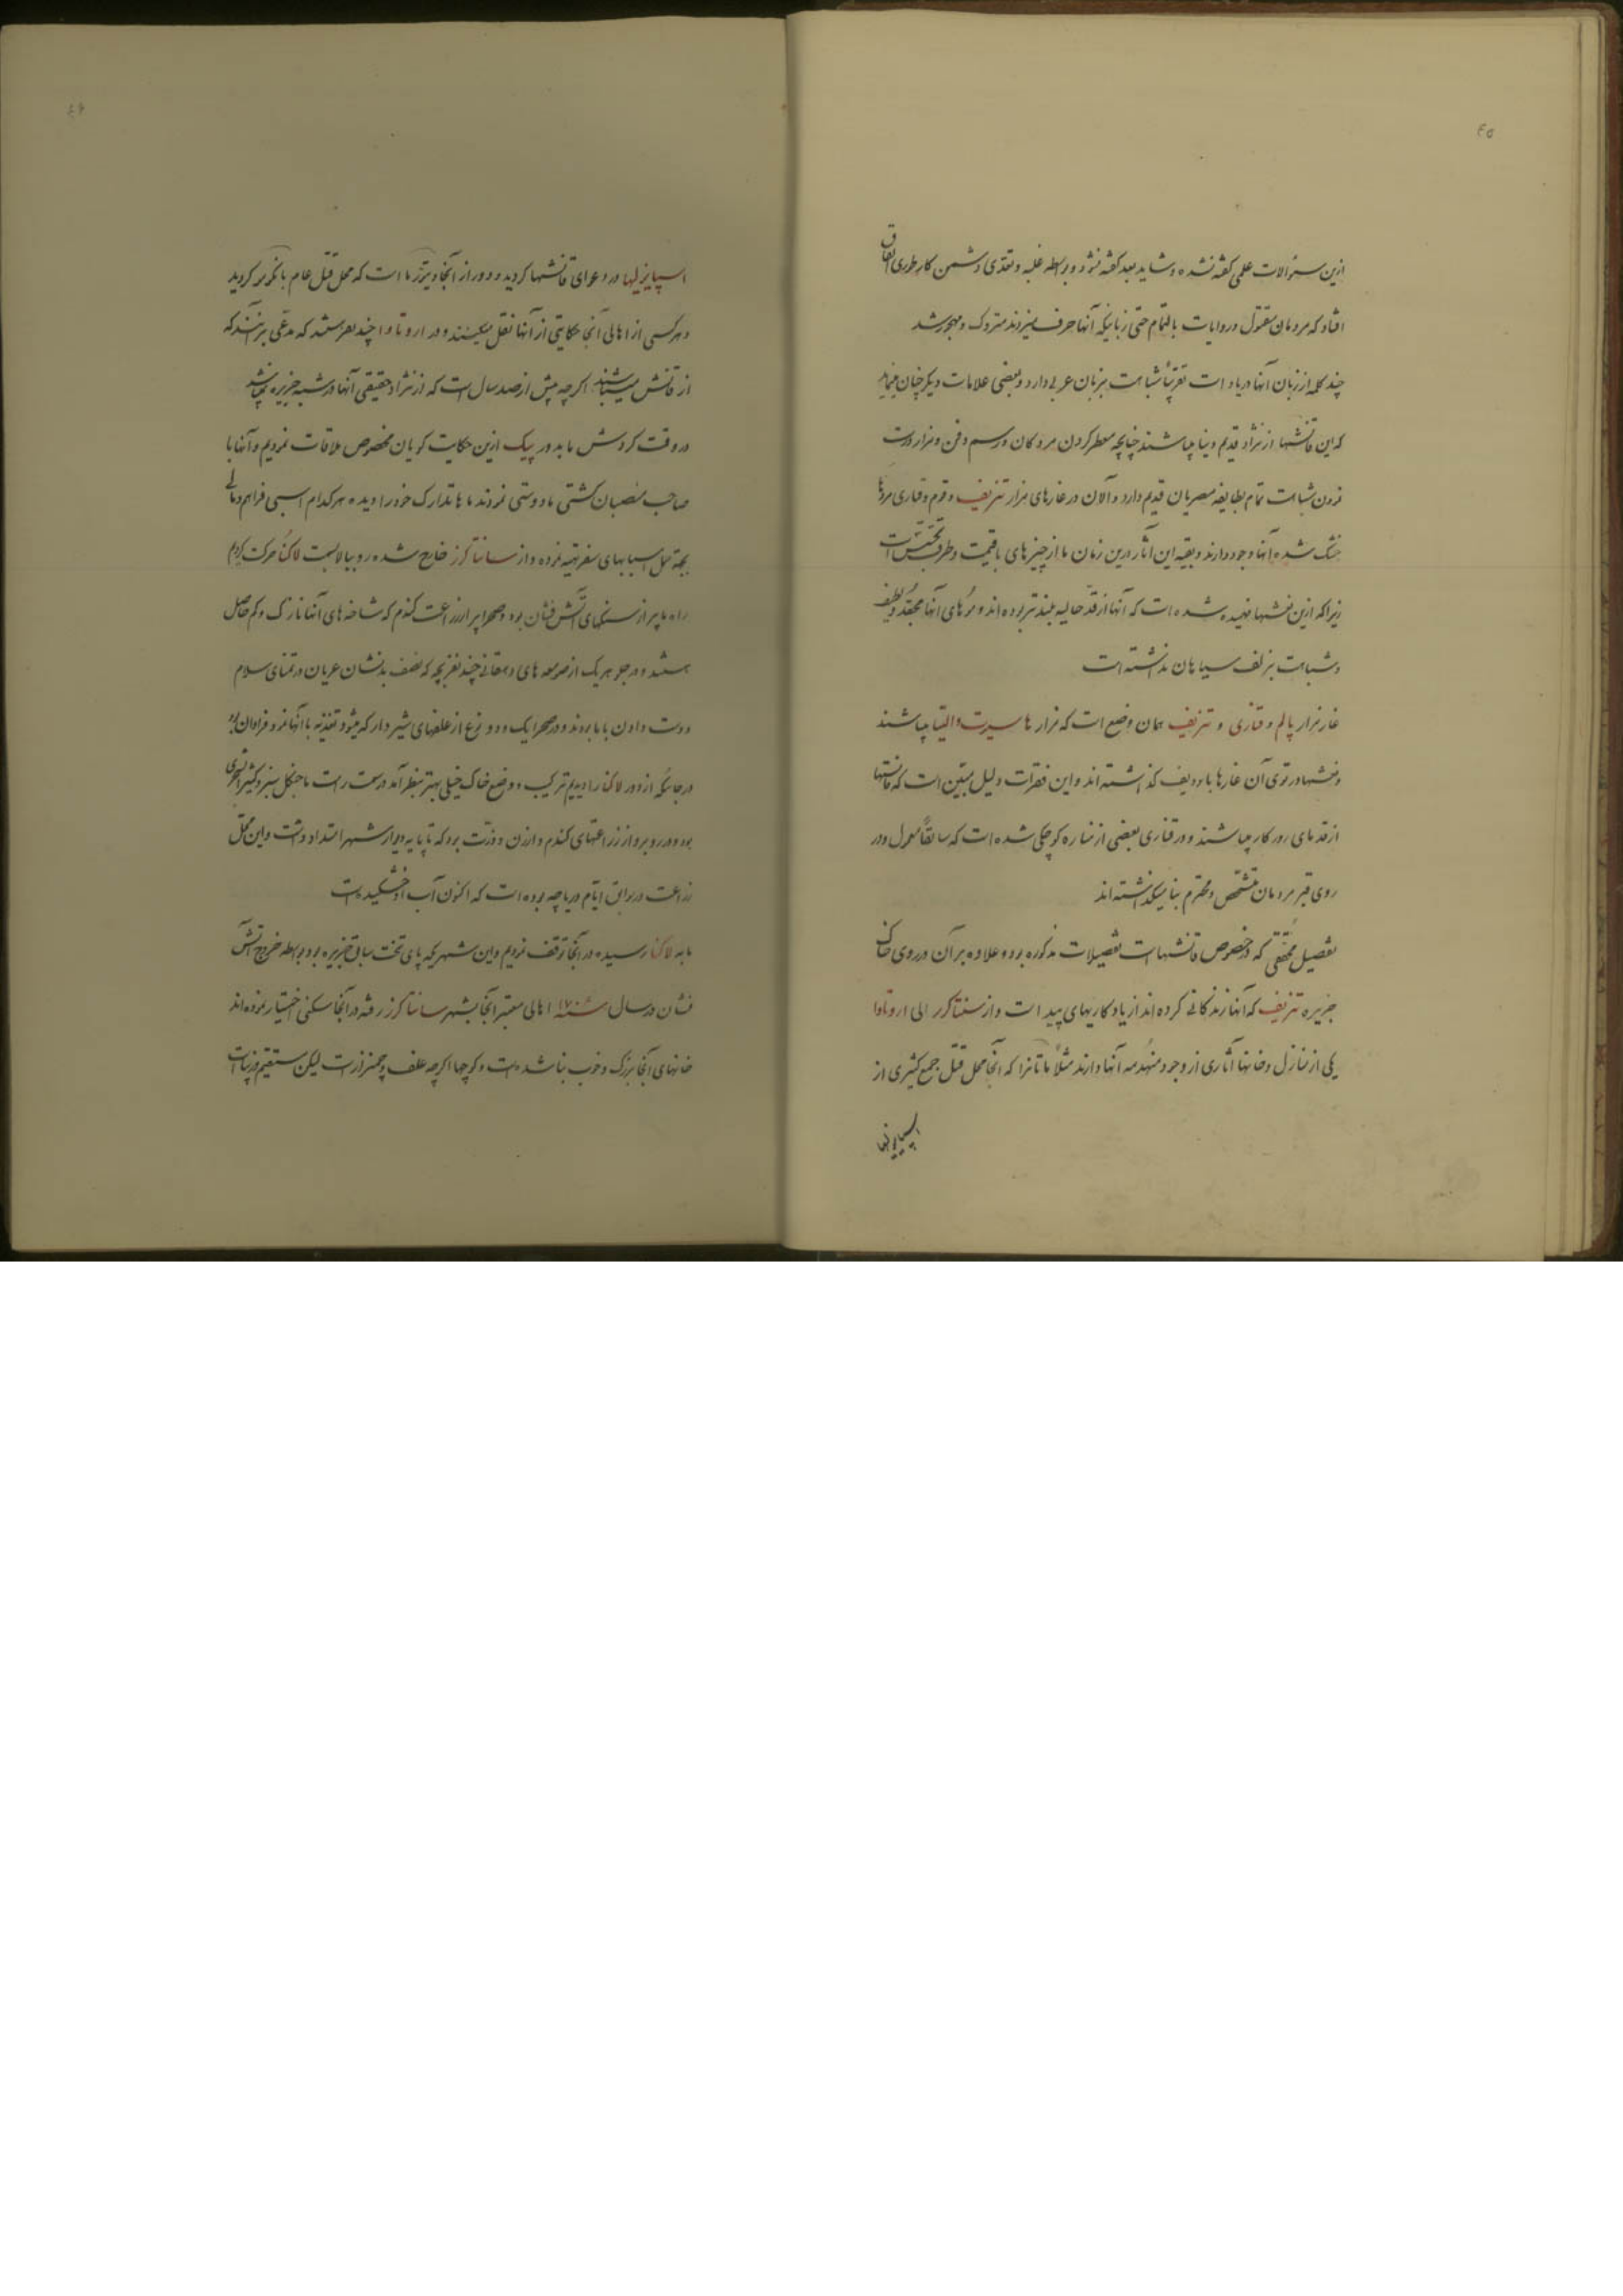 ۴۵
ازین سئوالات علمی گفته نشده و شاید بعد گفته نشود و بواسطه غلبه و تعدی دشمن کار طوری اتفاق
افتاد که مردمان مقتول و روایات بالتمام حتی زبانیکه آنها حرف میزدند متروک و مهجور شد
چند کلمه از زبان آنها در یاد است تقریباً شباهت بزبان عربی دارد و بعضی علامات دیگر چنان مینماید
که این قانشها از نژاد قدیم دنیا میباشند چنانچه معطر کردن مردگان و رسم دفن و مزار درست
نمودن شباهت تمام بطایفه مصریان قدیم دارد و الان در غارهای مزار تنریف و قوم و قناری مردها
خشک شده آنها وجود دارند و بقیه این آثار درین زمان ما از چیزهای با قیمت و طرف
زیرا که ازین نعشها فهمیده شده است که آنها از قد حالیه بلندتر بوده اند و موهای آنها مجعد و لطیف
و شباهت بزلف سیاهان نداشته است
غار مزار پالم و قناری و تنریف همان وضع است که مزار ها میباشند
و نعشها در توی آن غارها با ردیف گذاشته اند و این فقرات دلیل مبین است که قانشها
از قدمای روزگار میباشند و در قناری بعضی از مناره کوچکی شده است که سابقاً معمول و در
روی قبر مردمان متشخص و محترم بنا میگذاشته اند
تفصیل محققی که در خصوص قانشهاست تفصیلات مذکوره بود و علاوه بر آن در روی خاک
جزیره تنریف که آنها زندگانی کرده اند از یادگاریهای پیداست و از سنتاکرز الی اروتاوا
یکی از منازل و خانها آثاری از وجود منهدمه آنها دارند مثلاً ماتانزا که آنجا محل قتل جمع کثیری از
اسپانیولها
۴۶
اسپانیولها در دعوای قانشها گردید و دور از آنجا ویتوزما است که محل قتل عام با نکردر گردید
و هر کسی از اهالی آنجا حکایتی از آنها نقل میکنند و در اروتاوا چند نفر هستند که مدعی برآنند که
از قانش میباشند اگرچه بیش از صد سال است که از نژاد حقیقی آنها در شبه جزیره نمیباشد
در وقت گردش ما بدور پیک ازین حکایت گویان مخصوص ملاقات نمودیم و آنها با
صاحب منصبان کشتی ما دوستی نمودند ما ها تدارک خود را دیده هر کدام اسبی فراهم و مالی
بجهة حمل اسبابهای سفر تهیه نموده و از سانتاکرز خارج شده رو ببالا بسمت لاگنا حرکت کردیم
راه ما پر از سنگهای آتش فشان بود و صحرا پر از زراعت گندم که شاخه های آنها نازک و کم حاصل
هستند و در جلو هر یک از صومعه های دهقانی چند نفر بچه که نصف بدنشان عریان در تمنای سلام
و دست دادن با ما بودند و در صحرا یک دو نوع از علفهای شیر دار که میشود تغذیه با آنها نمود فراوان بود
در جائیکه از دور لاگنا را دیدیم ترکیب و وضع خاک خیلی بهتر بنظر آمد در سمت راست ما جنگل سبز و کثیر الشجری
بود و در روبرو از زراعتهای گندم و ارزن و ذرت بود که تا پایه دیوار شهر امتداد داشت و این محل
زراعت در سوابق ایام دریاچه بوده است که اکنون آب او خشکیده است
ما به لاگنا رسیده در آنجا توقف نمودیم و این شهریکه پای تخت سابق جزیره بود بواسطه خروج آتش
فشان در سال سنه ۱۷۰۵ اهالی معتبر آنجا بشهر سانتاکرز رفته در آنجا سکنی اختیار نموده اند
خانهای آنجا بزرگ و خوب بنا شده است و کوچها اگرچه علف و چمنزار است لیکن مستقیم و زیباست